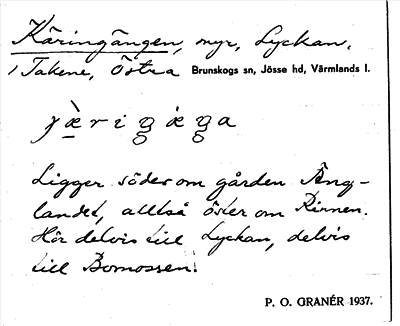 Käringängen, myr, Lyckan,
1 Takene, Östra Brunskogs sn, Jösse hd, Värmlands l.
Ligger söder om gården Äng-
landet, alltså öster om Rinnen.
Hör delvis till Lyckan, delvis
till Bomossen.
P. O. GRANÉR 1937.